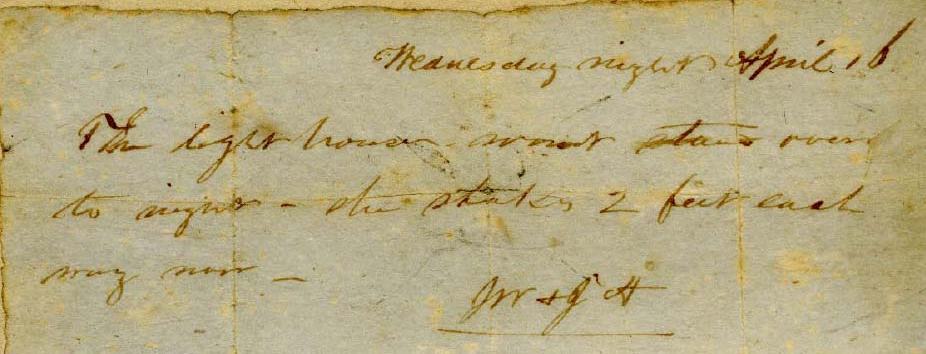 Wednesday night April 16
The light house wont stand over
to night - she shakes 2 feet each
way now -
JW + JA